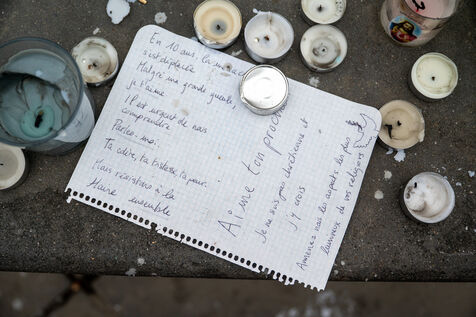 En 10 ans, la menace
s'est déplacée
Malgré une grande gueule,
je t'aime
Il est urgent de nous
comprendre
Parlez-moi.
Ta colère, ta tristesse, ta peur.
Mais résistons à la
Haine ensemble
Aime ton proch
Je ne suis pas chrétienne et
j'y crois
Amenez nous les aspects, des plus
lumineux de vos religions